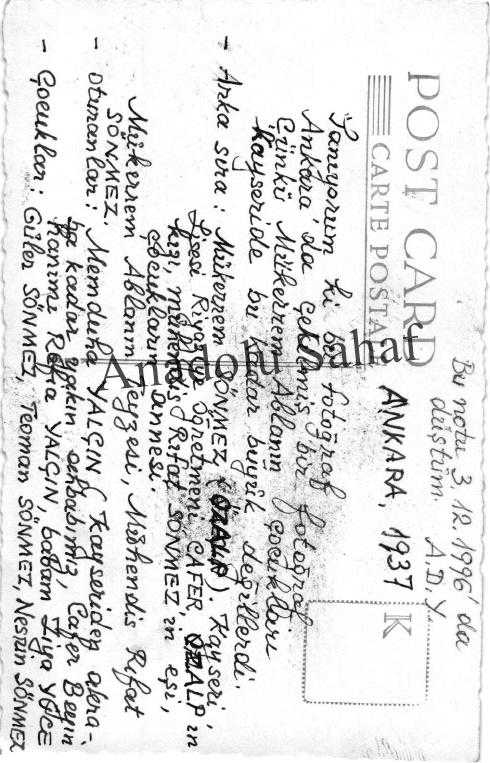 POST CARD
CARTE POSTA
Bu notu 3.12.1996'da
düştüm. A.D.Y.
ANKARA, 1937
K
Sanıyorum ki bu fotoğraf
Ankara'da çekilmiş bir fotoğraf
Çünkü Mükerrem Ablanın çocukları
Kayseride bu kadar büyük değillerdi.
- Arka sıra: Mükerrem SÖNMEZ (ÖZALP). Kayseri,
Lisesi öğretmeni CAFER ÖZALP'ın
kızı, mühendis Rıfat SÖNMEZ'in eşi,
çocukların annesi.
Mükerrem Ablanın teyzesi, Mühendis Rıfat
SÖNMEZ.
- Oturanlar: Memduha YALÇIN (Kayseriden akra-
ba kadar yakın ahbabımız, Cafer Beyin
hanımı YALÇIN, babam Ziya YÜCE
- Çocuklar: Güler SÖNMEZ, Teoman SÖNMEZ, Nesrin SÖNMEZ
Anadolu Sahaf